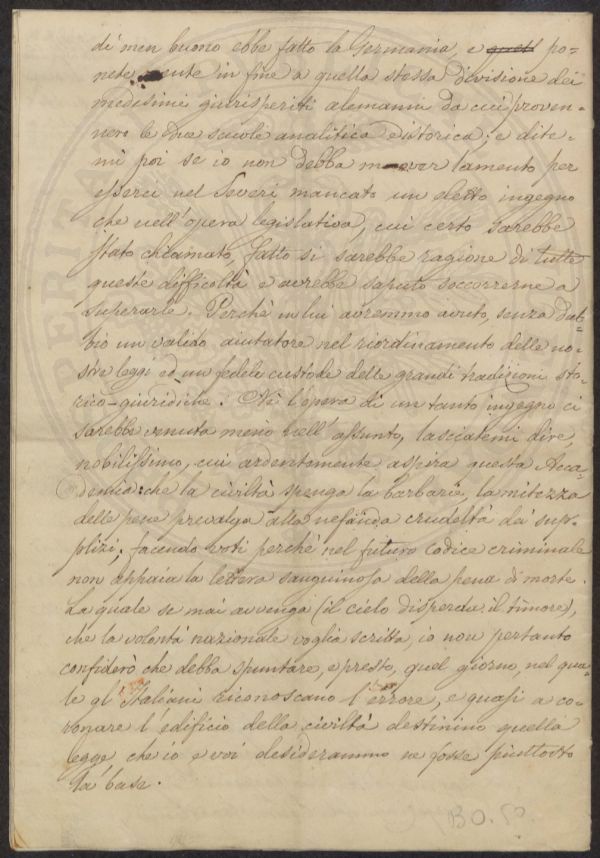 di men buono ebbe fatto la Germania, e po-
nete mente in fine a quella stessa divisione dei
medesimi giurisperiti alemanni da cui proven-
nero le due scuole analitica e istorica; e dite-
mi poi se io non debba mover lamento per
esserci nel Severi mancato un eletto ingegno
che nell'opera legislativa, cui certo sarebbe
stato chiamato, fatto si sarebbe ragione di tutte
queste difficoltà e avrebbe saputo soccorrerne a
superarle. Perchè in lui avremmo avuto, senza dub-
bio un valido aiutatore nel riordinamento delle no-
stre leggi ed un fedele custode delle grandi tradizioni sto-
rico-giuridiche. Nè l'opera di un tanto ingegno ci
sarebbe venuta meno nell'assunto, lasciatemi dire,
nobilissimo, cui ardentemente aspira questa Acca-
demia: che la civiltà spenga la barbarie, la mitezza
delle pene prevalga alla nefanda crudeltà dei sup-
plizi; facendo voti perchè nel futuro Codice criminale
non appaia la lettera sanguinosa della pena di morte.
La quale se mai avvenga (il cielo disperda il timore),
che la volontà nazionale voglia scritta, io non pertanto
confiderò che debba spuntare, e presto, quel giorno, nel qua-
le gl'Italiani riconoscano l'errore, e quasi a co-
ronare l'edificio della civiltà destinino quella
legge che io e voi desiderammo ne fosse piuttosto
la base.